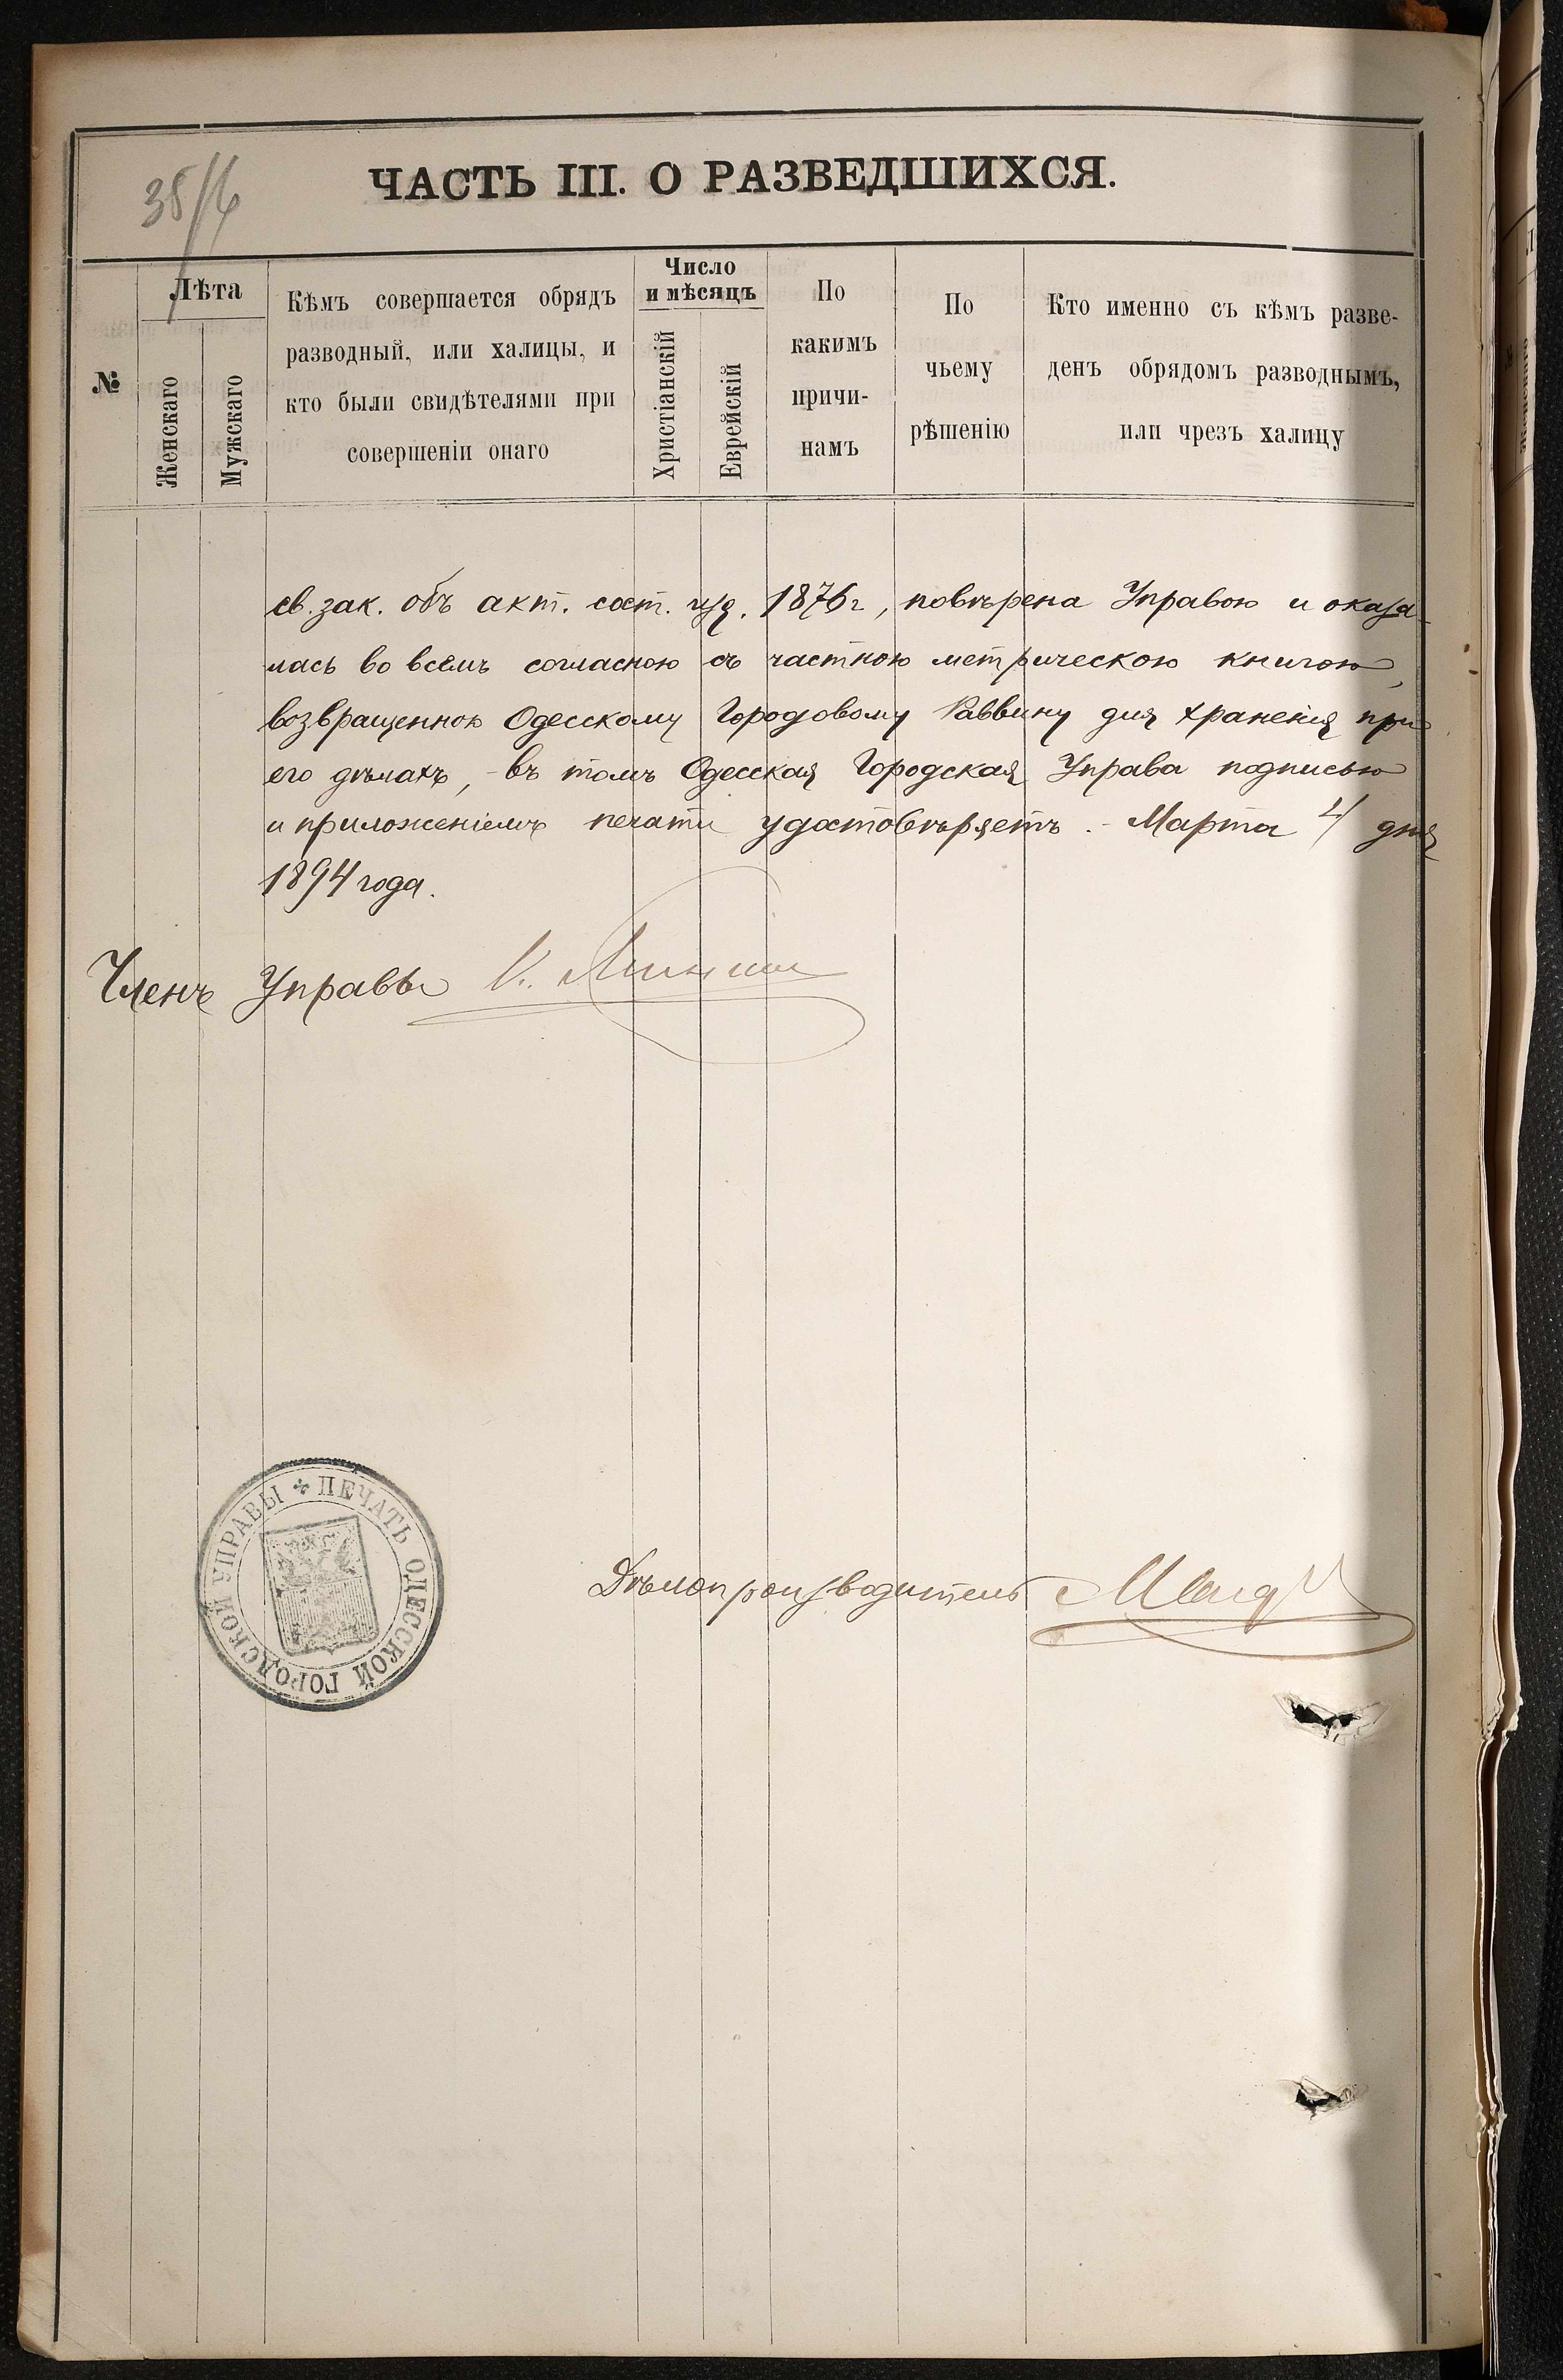 35/6
ЧАСТЬ III. О РАЗВЕДШИХСЯ.
№
Лѣта
Женскаго
Мужскаго
Кѣмъ совершается обрядъ
разводный, или халицы, и
кто были свидѣтелями при
совершеніи онаго
Число
и мѣсяцъ
Христіанскій
Еврейскій
По
какимъ
причи-
намъ
По
чьему
рѣшенію
Кто именно съ кѣмъ разве-
денъ обрядомъ разводнымъ,
или чрезъ халицу
св. зак. объ акт. сост. изд. 1876 г, повѣрена Управою и оказа
лась во всемъ согласною съ частною метрическою книгою,
возвращенною Одесскому Городовому Раввину для храненія при
его дѣлахъ, - въ томъ Одесская Городская Управа подписью
и приложеніемъ печати удостовѣряетъ. - Марта 4 дня
1894 года.
Членъ Управы
ПЕЧАТЬ ОДЕССКОЙ ГОРОДСКОЙ УПРАВЫ
Дѣлопроизводитель